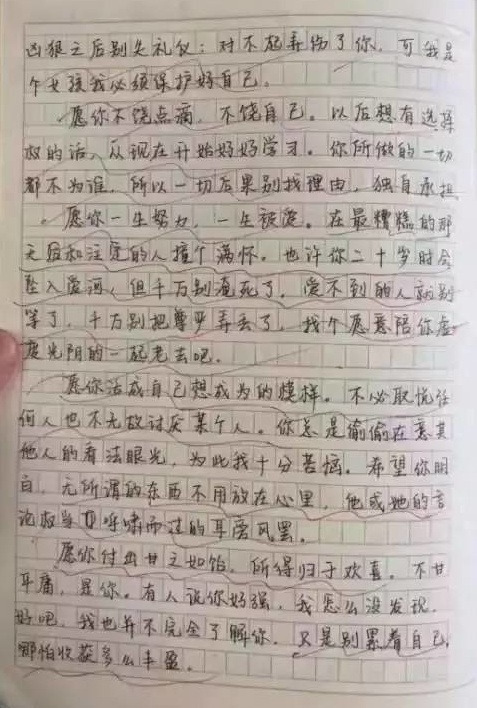 凶狠之后别失礼仪：对不起弄伤了你，可我是
个女孩我必须保护好自己。
愿你不饶点滴，不饶自己。以后想有选择
权的话，从现在开始好好学习。你所做的一切
都不为谁，所以一切后果别找理由，独自承担
愿你一生努力，一生被爱。在最糟糕的那
天与和注定的人撞个满怀。也许你二十岁时会
坠入爱河，但千万别淹死了，爱不到的人就别
等了，千万别把尊严弄丢了，找个愿意陪你虚
度光阴的一起老去吧。
愿你活成自己想成为的模样。不必取悦任
何人也不无故讨厌某个人。你总是偷偷在意其
他人的看法眼光，为此我十分苦恼。希望你明
白，无所谓的东西不用放在心里，他或她的言
论权当呼啸而过的耳旁风罢。
愿你付出甘之如饴，所得归于欢喜。不甘
平庸，是你。有人说你好强，我怎么没发现，
好吧，我也并不完全了解你，只是别累着自己，
哪怕收获多么丰盈。